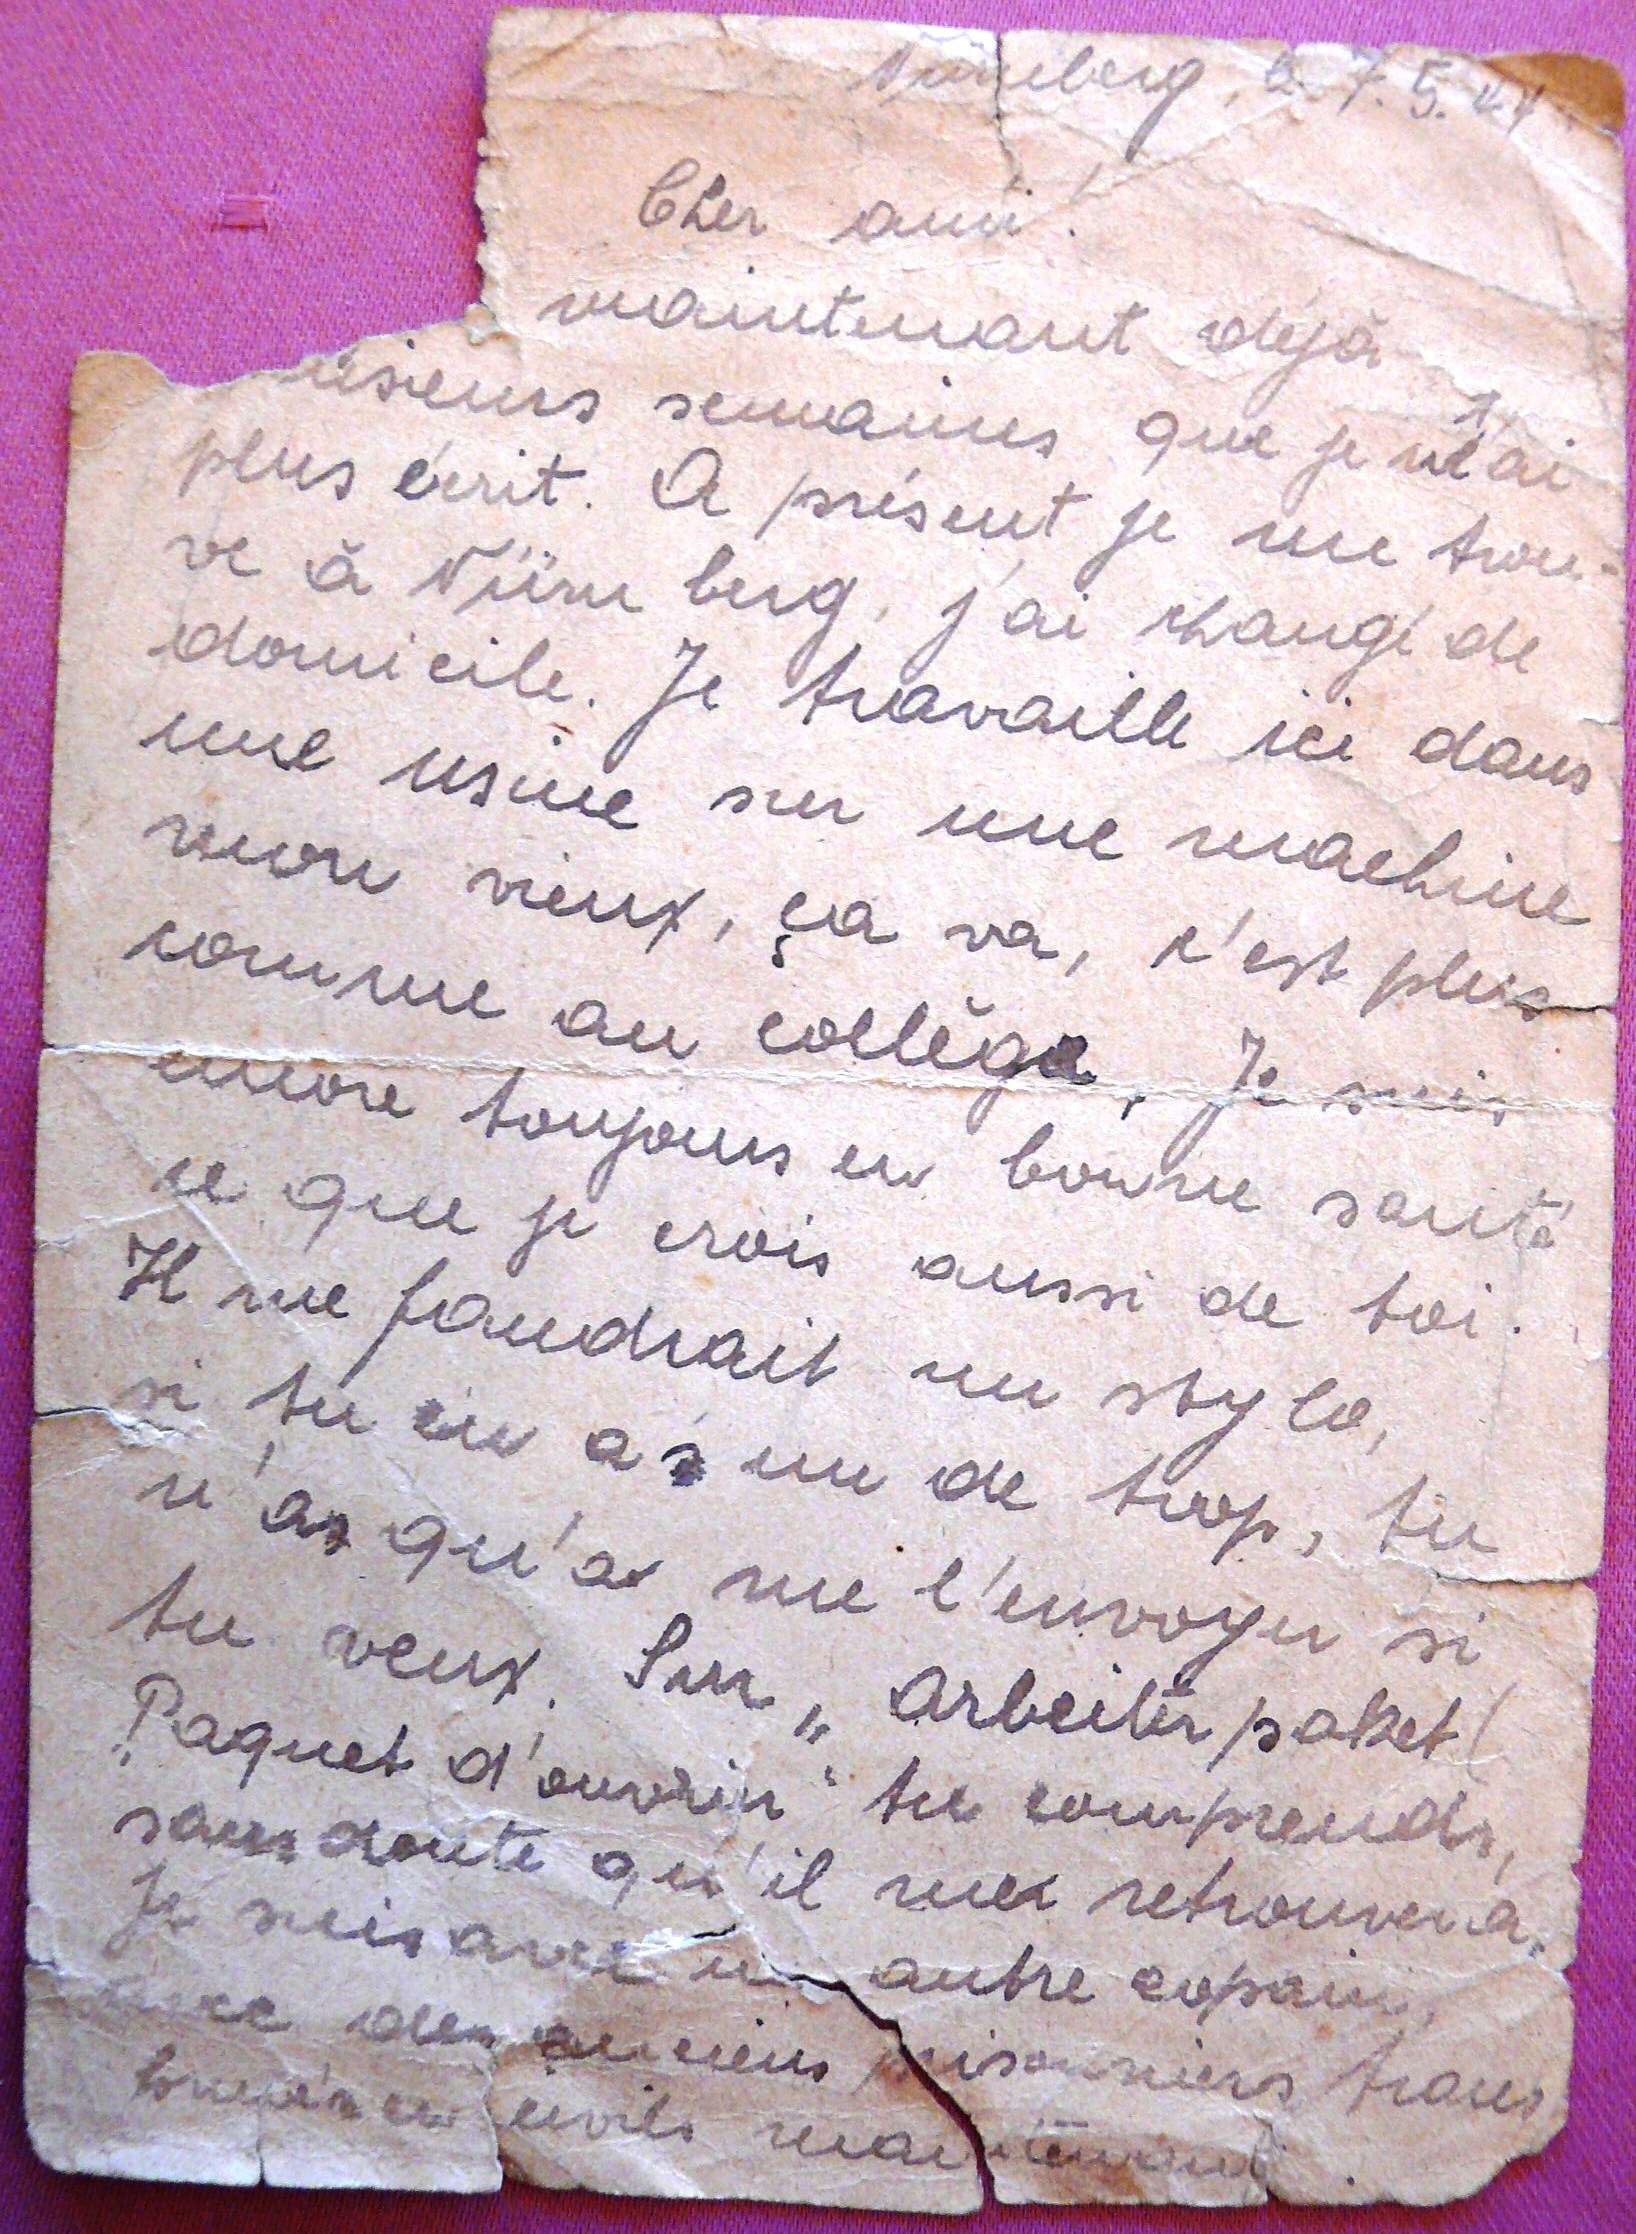 Nürnberg, 27.5.44.
Cher ami!
maintenant déjà
usieurs semaines que je n'ai
plus écrit. A présent je me trou-
ve à Nürnberg, j'ai changé de
domicile. Je travaille ici dans
une usine sur une machine
mon vieux, ça va, c'est plus
comme au collège. Je suis
encore toujours en bonne santé
ce que je crois aussi de toi.
Il me faudrait un stylo,
si tu en as un de trop, tu
n'as qu'a me l'envoyer si
tu veux. Sur „Arbeiterpaket (
Paquet d'ouvrier" tu comprends,
sans doute qu'il me retrouvera.
Je suis avec un autre copain,
avec des anciens prisonniers trans
formés en civils maintenant.